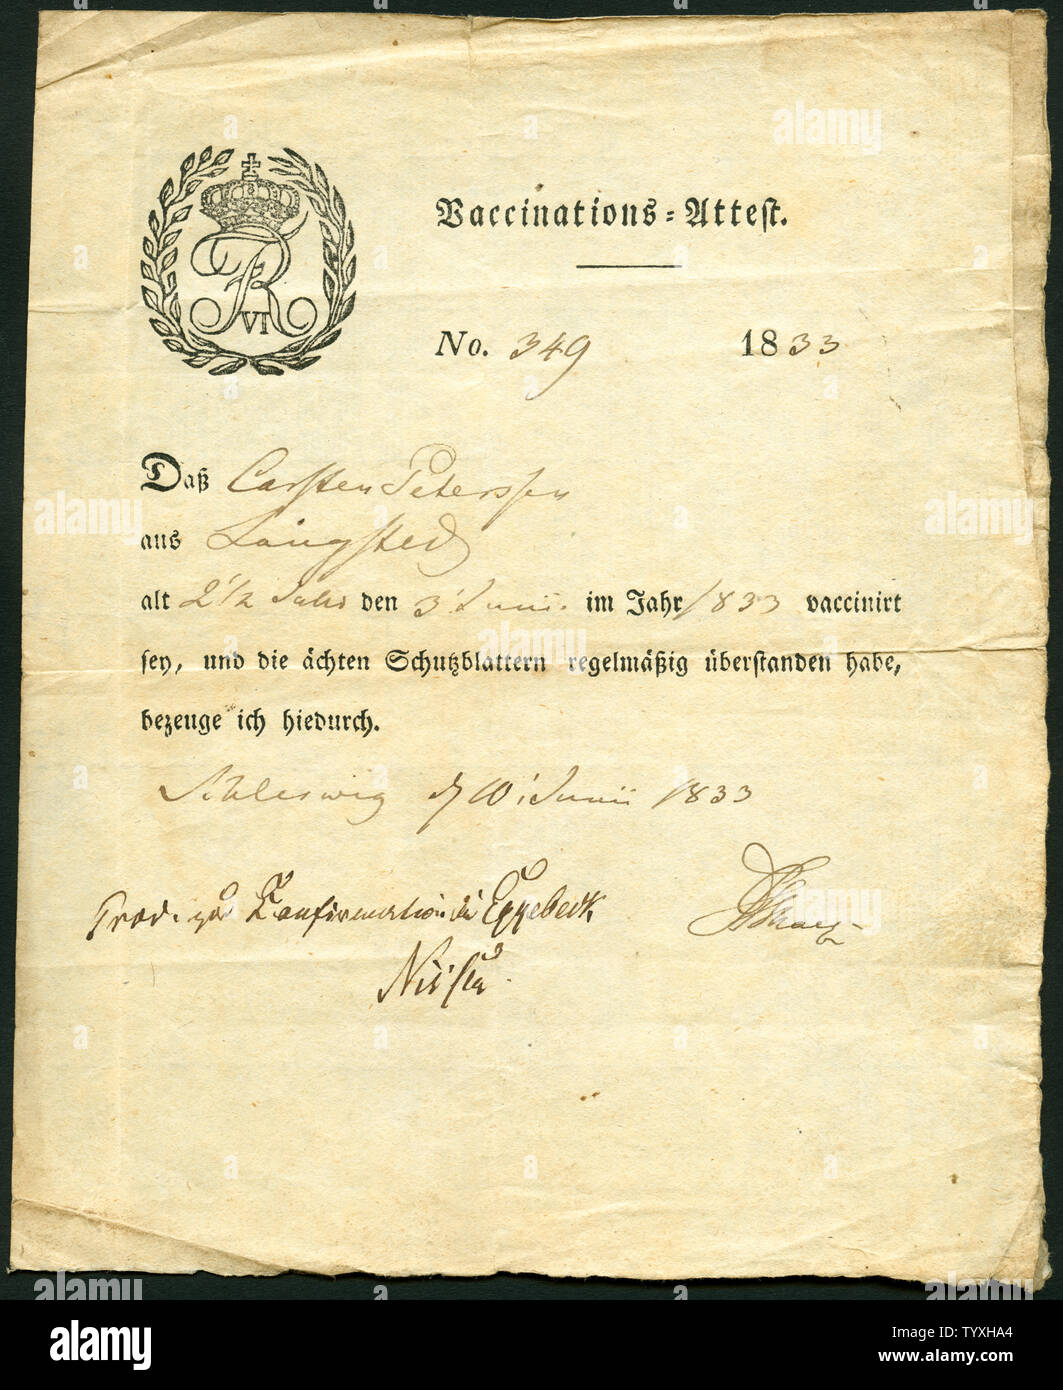 FR VI
Vaccinations-Attest.
No. 349 1833
Daß Carsten Peterssen
aus Langsted
alt 2 1/2 Jahr den 3 Junii. im Jahr 1833 vaccinirt
sey, und die ächten Schutzblattern regelmäßig überstanden habe,
bezeuge ich hiedurch.
Schleswig d 10 Junii 1833
Prod. zur Confirmation in Eggebeck
alamy
Image ID: TYXHA4
www.alamy.com